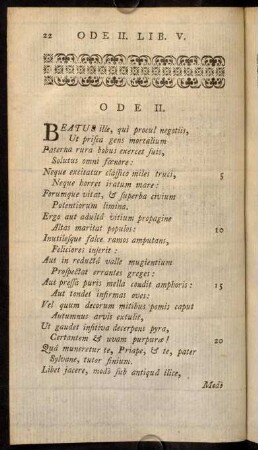 22 ODE II. LIB. V.
ODE II.
BEATUS ille, qui procul negotiis,
Ut prisca gens mortalium
Paterna rura bobus exercet suis,
Solutus omni fœnore:
Neque excitatur classico miles truci, 5
Neque horret iratum mare:
Forumque vitat, & superba civium
Potentiorum limina.
Ergo aut adultâ vitium propagine
Altas maritat populos: 10
Inutilesque falce ramos amputans,
Feliciores inserit:
Aut in reductâ valle mugientium
Prospectat errantes greges:
Aut pressa puris mella condit amphoris: 15
Aut tondet infirmas oves:
Vel quum decorum mitibus pomis caput
Autumnus arvis extulit,
Ut gaudet insitiva decerpens pyra,
Certantem & uvam purpuræ! 20
Quâ muneretur te, Priape, & te, pater
Sylvane, tutor finium.
Libet jacere, modò sub antiquâ ilice,
Modò